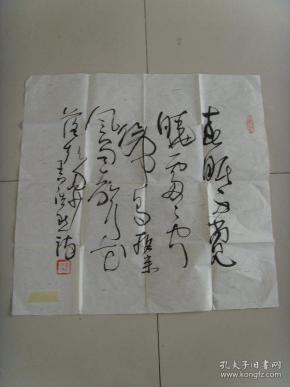 春眠不觉
晓处々闻
啼鸟夜来
风雨声花
落知多少
孟浩然诗
孔夫子旧书网